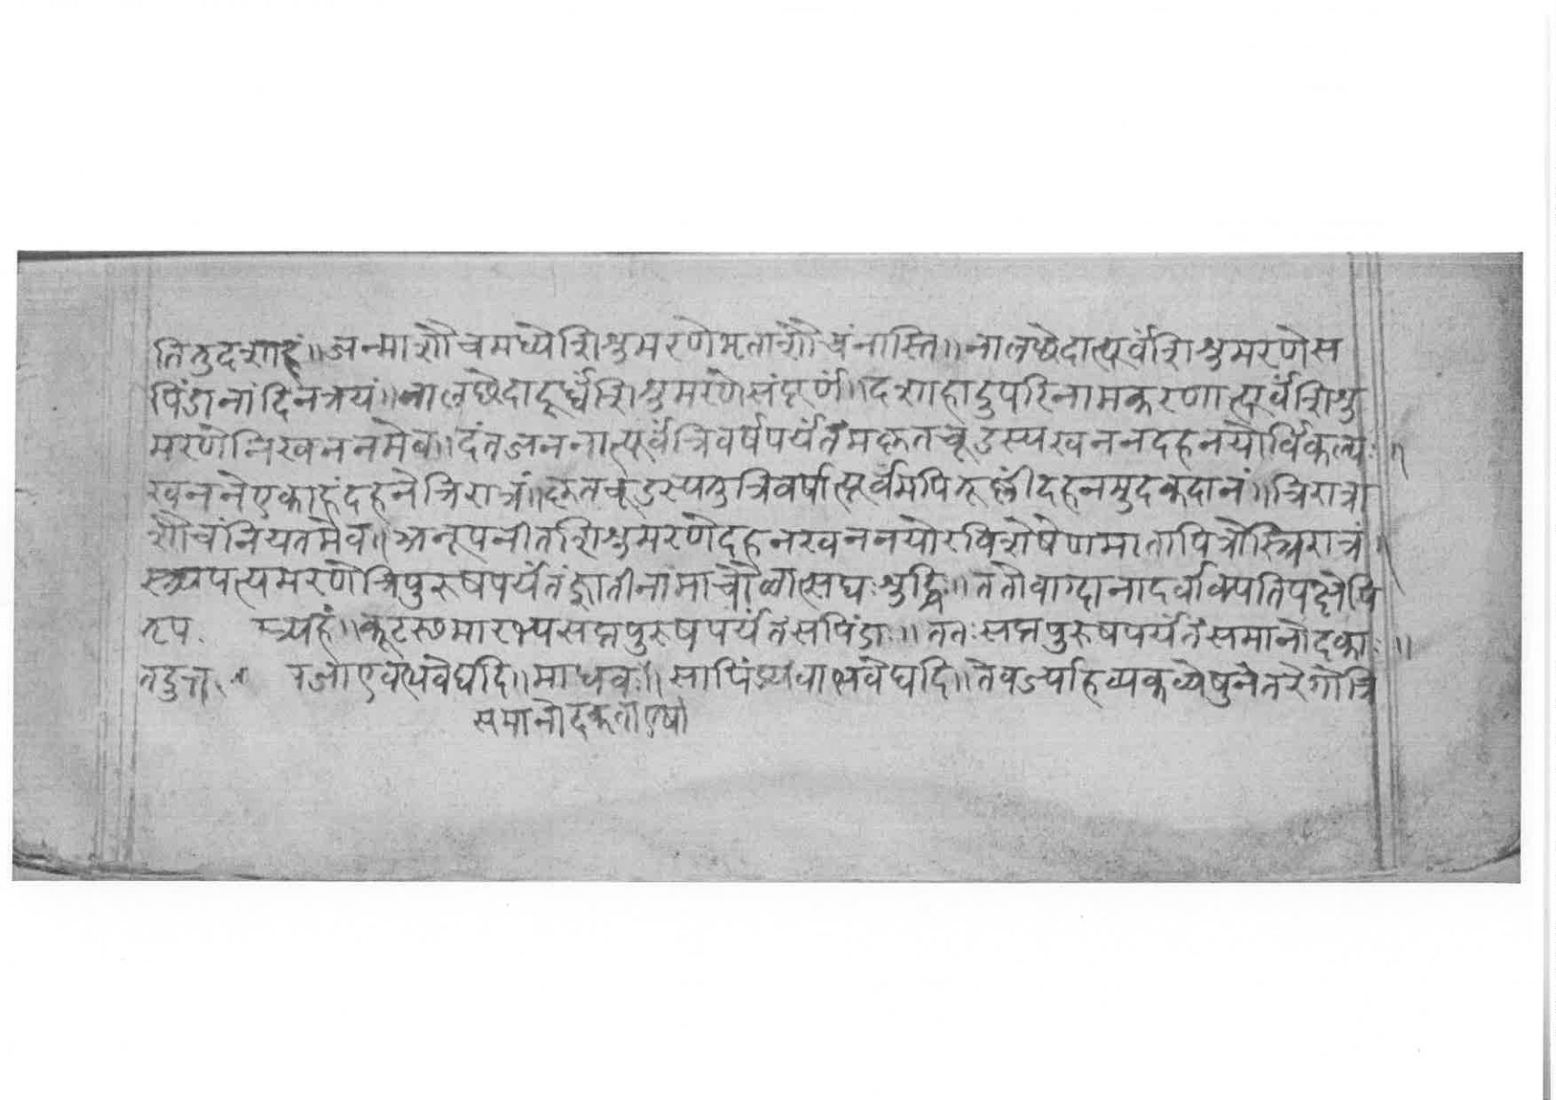 तितुदशाहं॥जन्माशौचमध्येशिशुमरणेमृताशौचंनास्ति॥नालछेदात्पूर्वंशिशुमरणेस
पिंडानांदिनत्रयं॥नालछेदादूर्ध्वंशिशुमरणेसंपूर्णं॥दशाहादुपरिनामकरणात्पूर्वंशिशु
मरणेनिखननमेव॥दंतजननात्पूर्वंत्रिवर्षपर्यंतंमकृतचूडस्यखननदहनयोर्विकल्पः॥
खननेएकाहंदहनेत्रिरात्रं॥कृतचूडस्यतुत्रिवर्षात्पूर्वमपितूष्णींदहनमुदकदानं॥त्रिरात्रा
शौचंनियतमेव॥अनुपनीतशिशुमरणेदहनखननयोरविशेषेणमातापित्रोस्त्रिरात्रं॥
स्त्र्यपत्यमरणेत्रिपुरुषपर्यंतंज्ञातीनामाचौलात्सद्यःशुद्धिः॥ततोवाग्दानादर्वाक्पतिपक्षेपि
तृप त्र्यहं॥कूटस्थमारभ्यसप्तपुरुषपर्यंतंसपिंडाः॥ततःसप्तपुरुषपर्यंतंसमानोदकाः॥
माधवः॥सापिंड्यंवाभवेद्यदि॥तेवर्ज्याहव्यकव्येषुनेतरेगोत्रि
समानोदकता